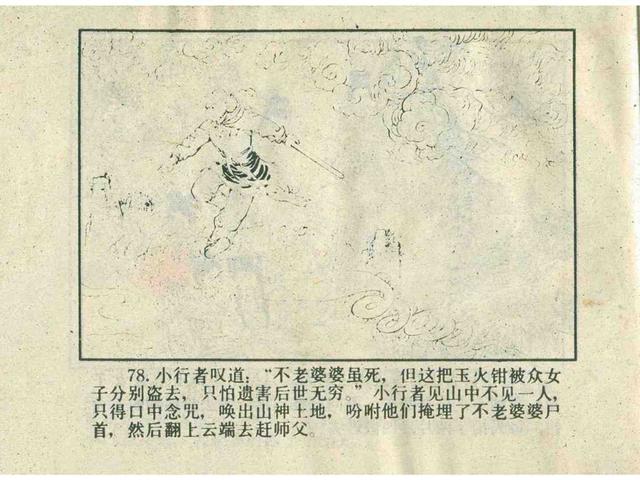 78. 小行者叹道：“不老婆婆虽死，但这把玉火钳被众女
子分别盗去，只怕遗害后世无穷。”小行者见山中不见一人，
只得口中念咒，唤出山神土地，吩咐他们掩埋了不老婆婆尸
首，然后翻上云端去赶师父。